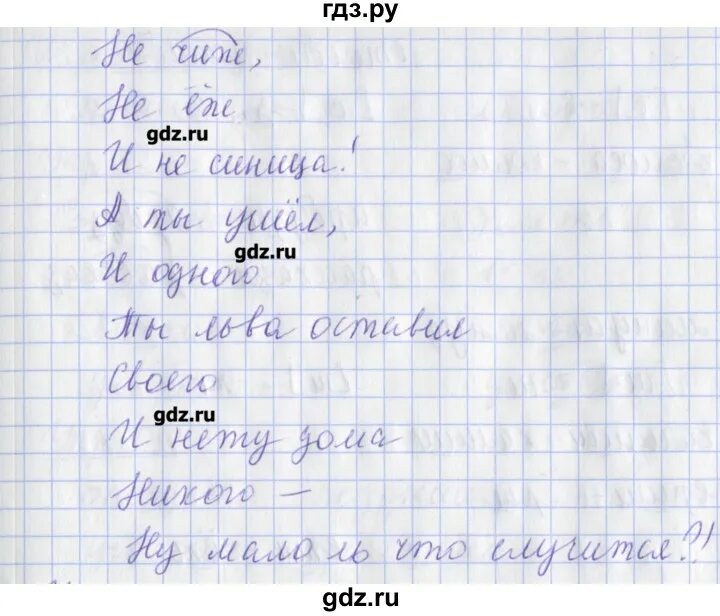 гдз.ру
Не чиж,
Не ёж
gdz.ru
И не синица!
А ты ушёл,
gdz.ru
И одного
Ты льва оставил
Своего
gdz.ru
И нету дома
Никого —
Ну мало ль что случится?!
gdz.ru